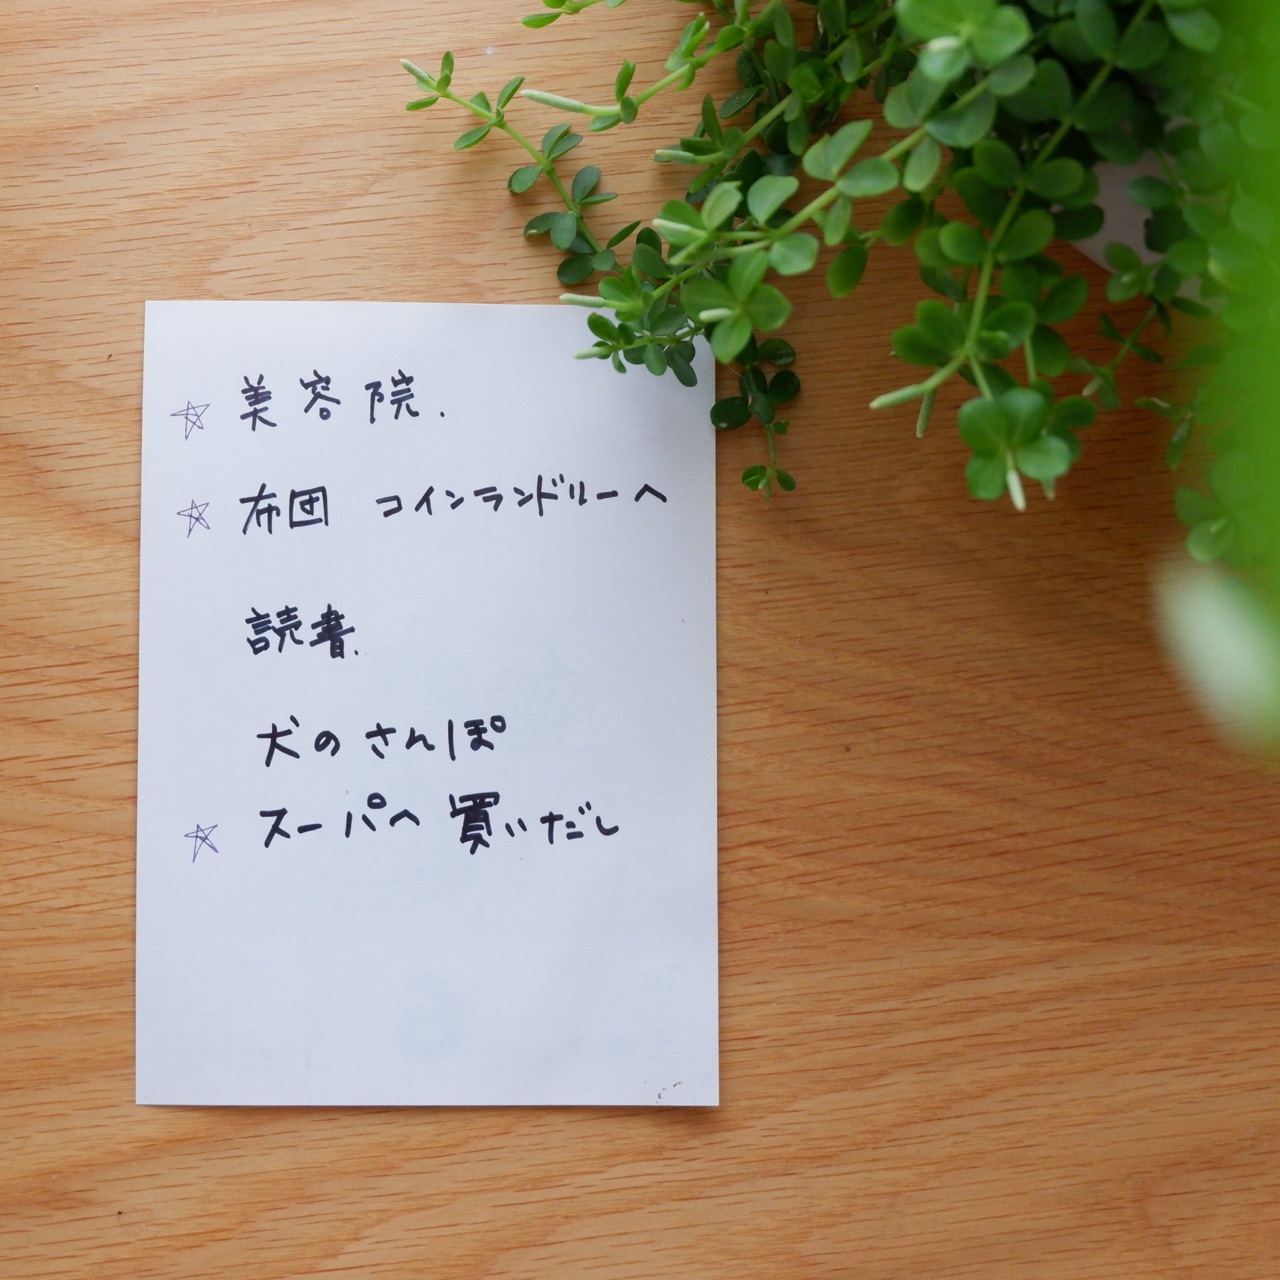 ☆ 美容院.
☆ 布団 コインランドリーへ
読書.
犬のさんぽ
☆ スーパへ 買いだし